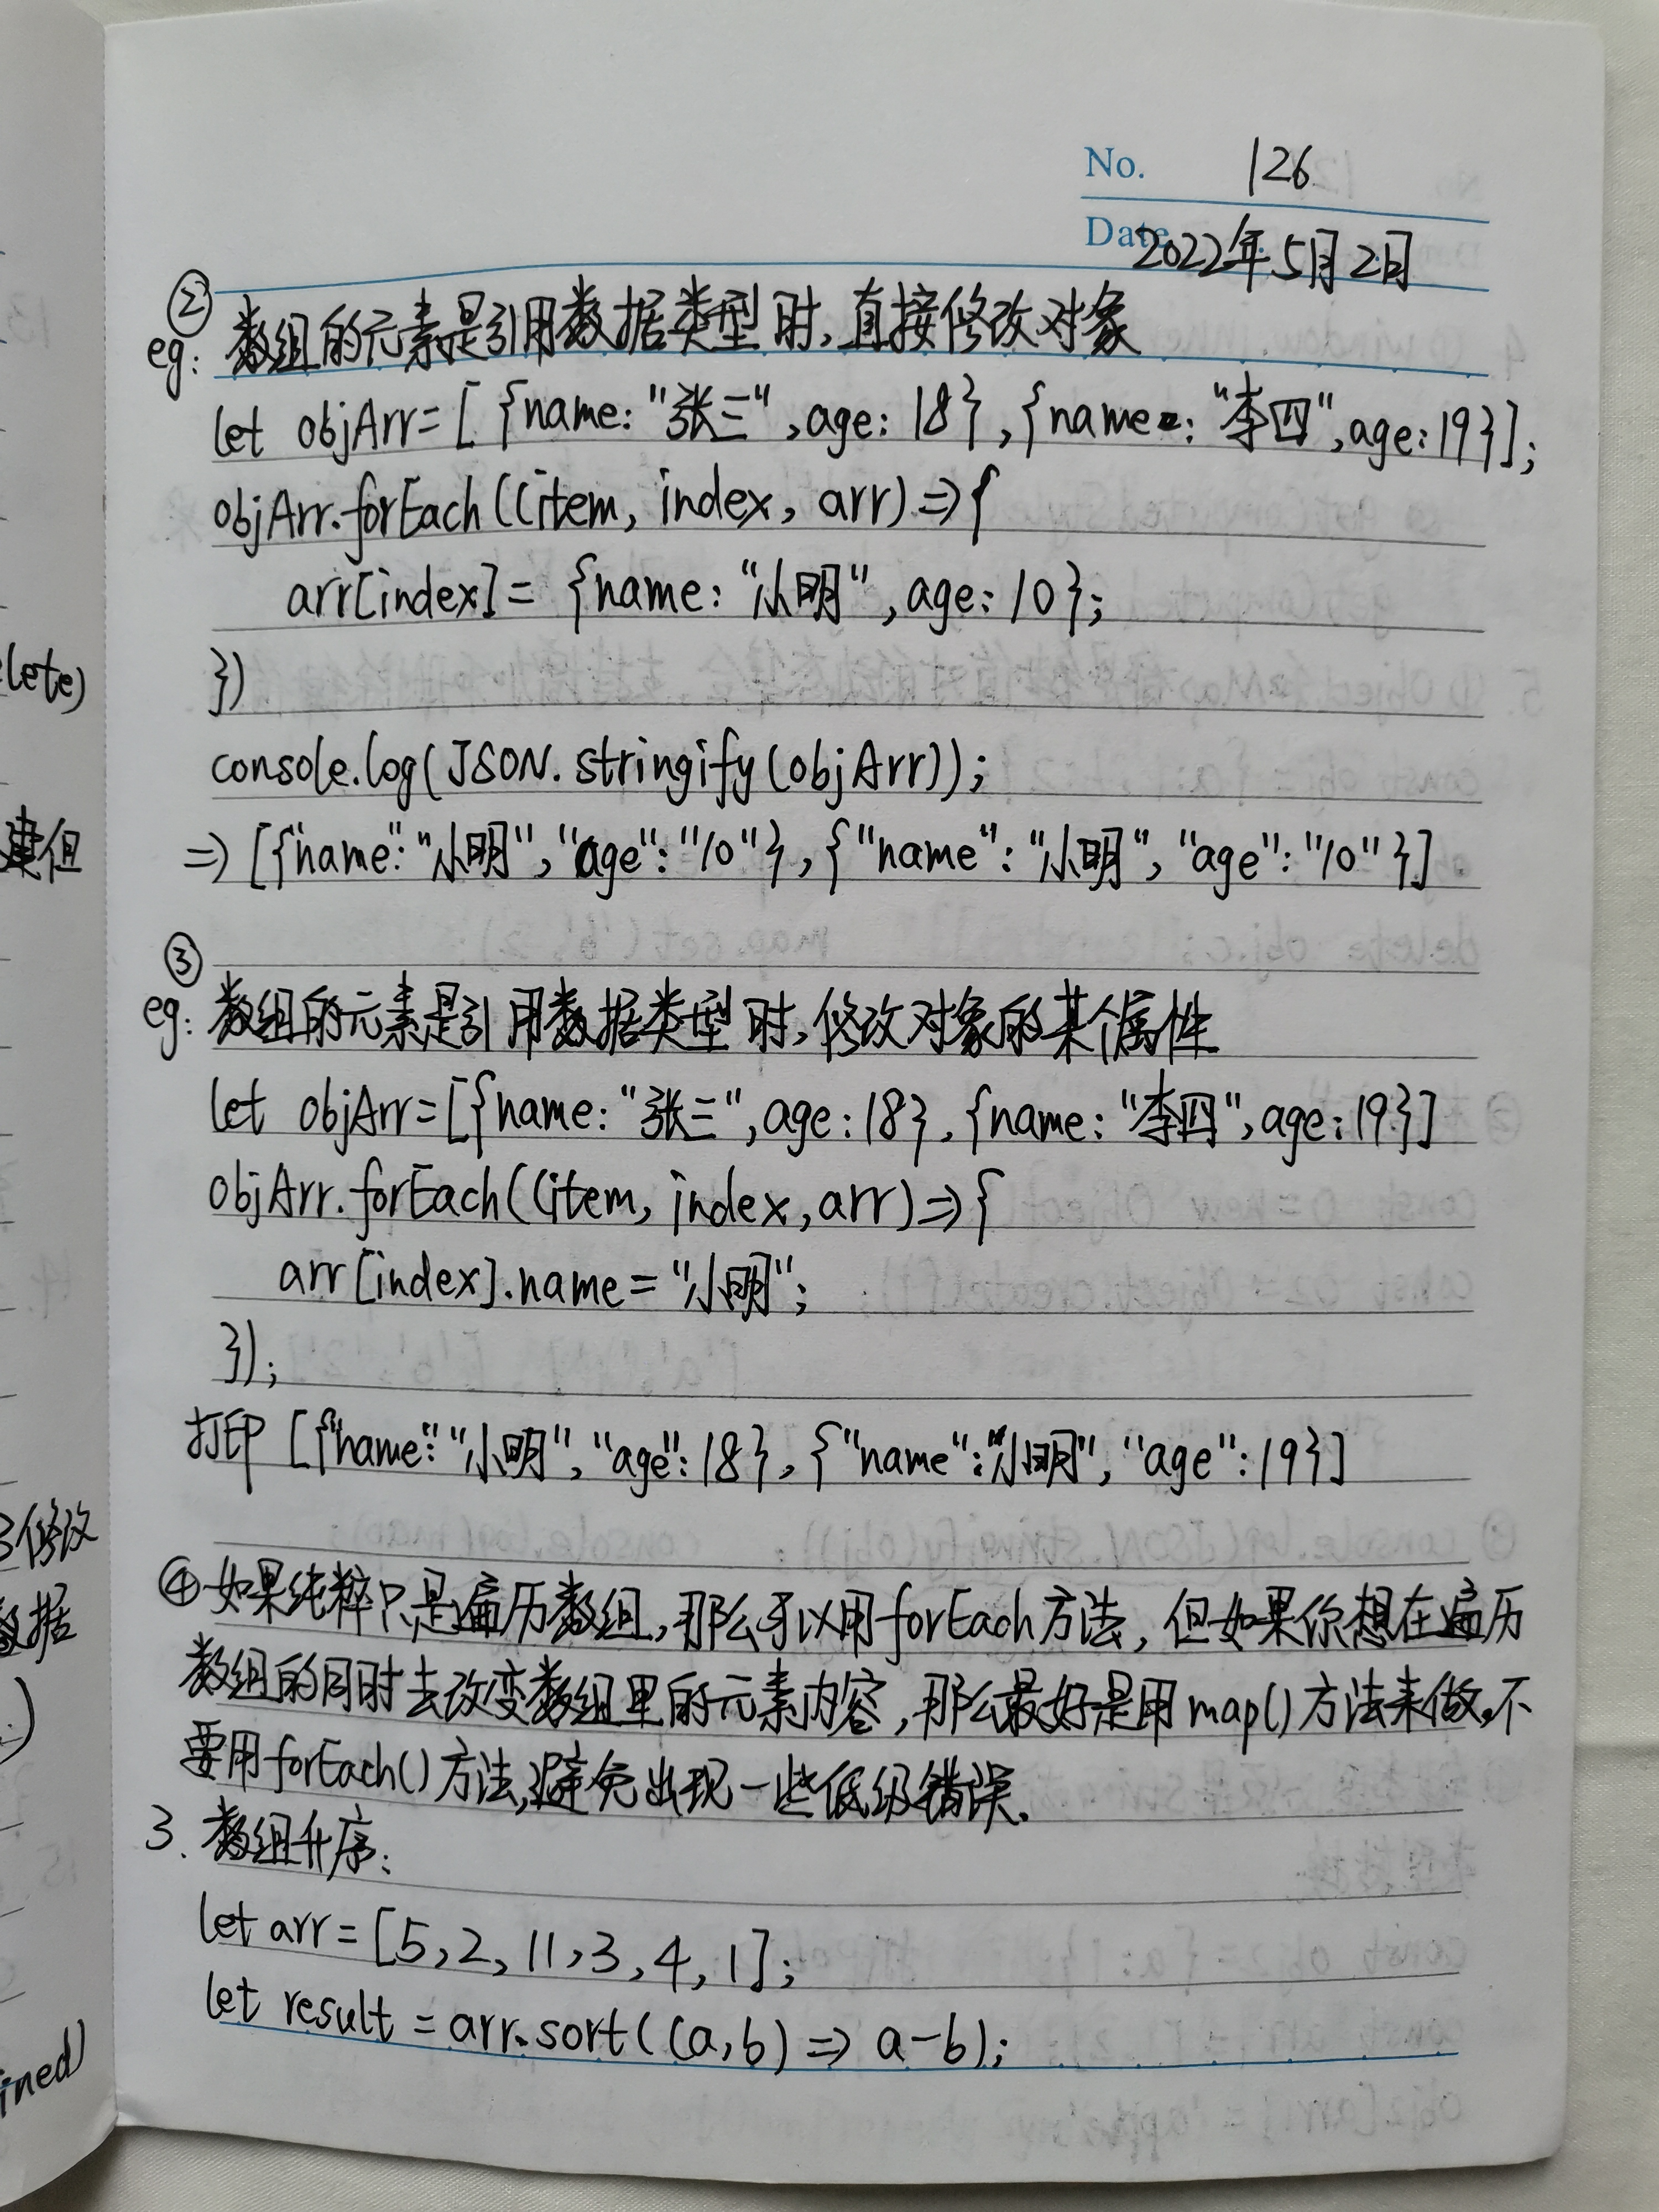 No. 126
Date 2022年5月2日
②
eg: 数组的元素是引用数据类型时,直接修改对象
let objArr=[{name:"张三",age:18},{name:"李四",age:19}];
objArr.forEach((item, index, arr)=>{
arr[index]= {name:"小明",age:10};
})
console.log(JSON.stringify(objArr));
=> [{"name":"小明","age":"10"},{"name":"小明","age":"10"}]
③
eg: 数组的元素是引用数据类型时,修改对象的某个属性
let objArr=[{name:"张三",age:18},{name:"李四",age:19}]
objArr.forEach((item, index,arr)=>{
arr[index].name="小明";
});
打印 [{"name":"小明","age":18},{"name":"小明","age":19}]
④如果纯粹只是遍历数组,那么可以用forEach方法,但如果你想在遍历
数组的同时去改变数组里的元素内容,那么最好是用map()方法来做,不
要用forEach()方法,避免出现一些低级错误.
3. 数组升序:
let arr=[5,2,11,3,4,1];
let result=arr.sort((a,b)=> a-b);
lete)
建但
修改
数据
ined)